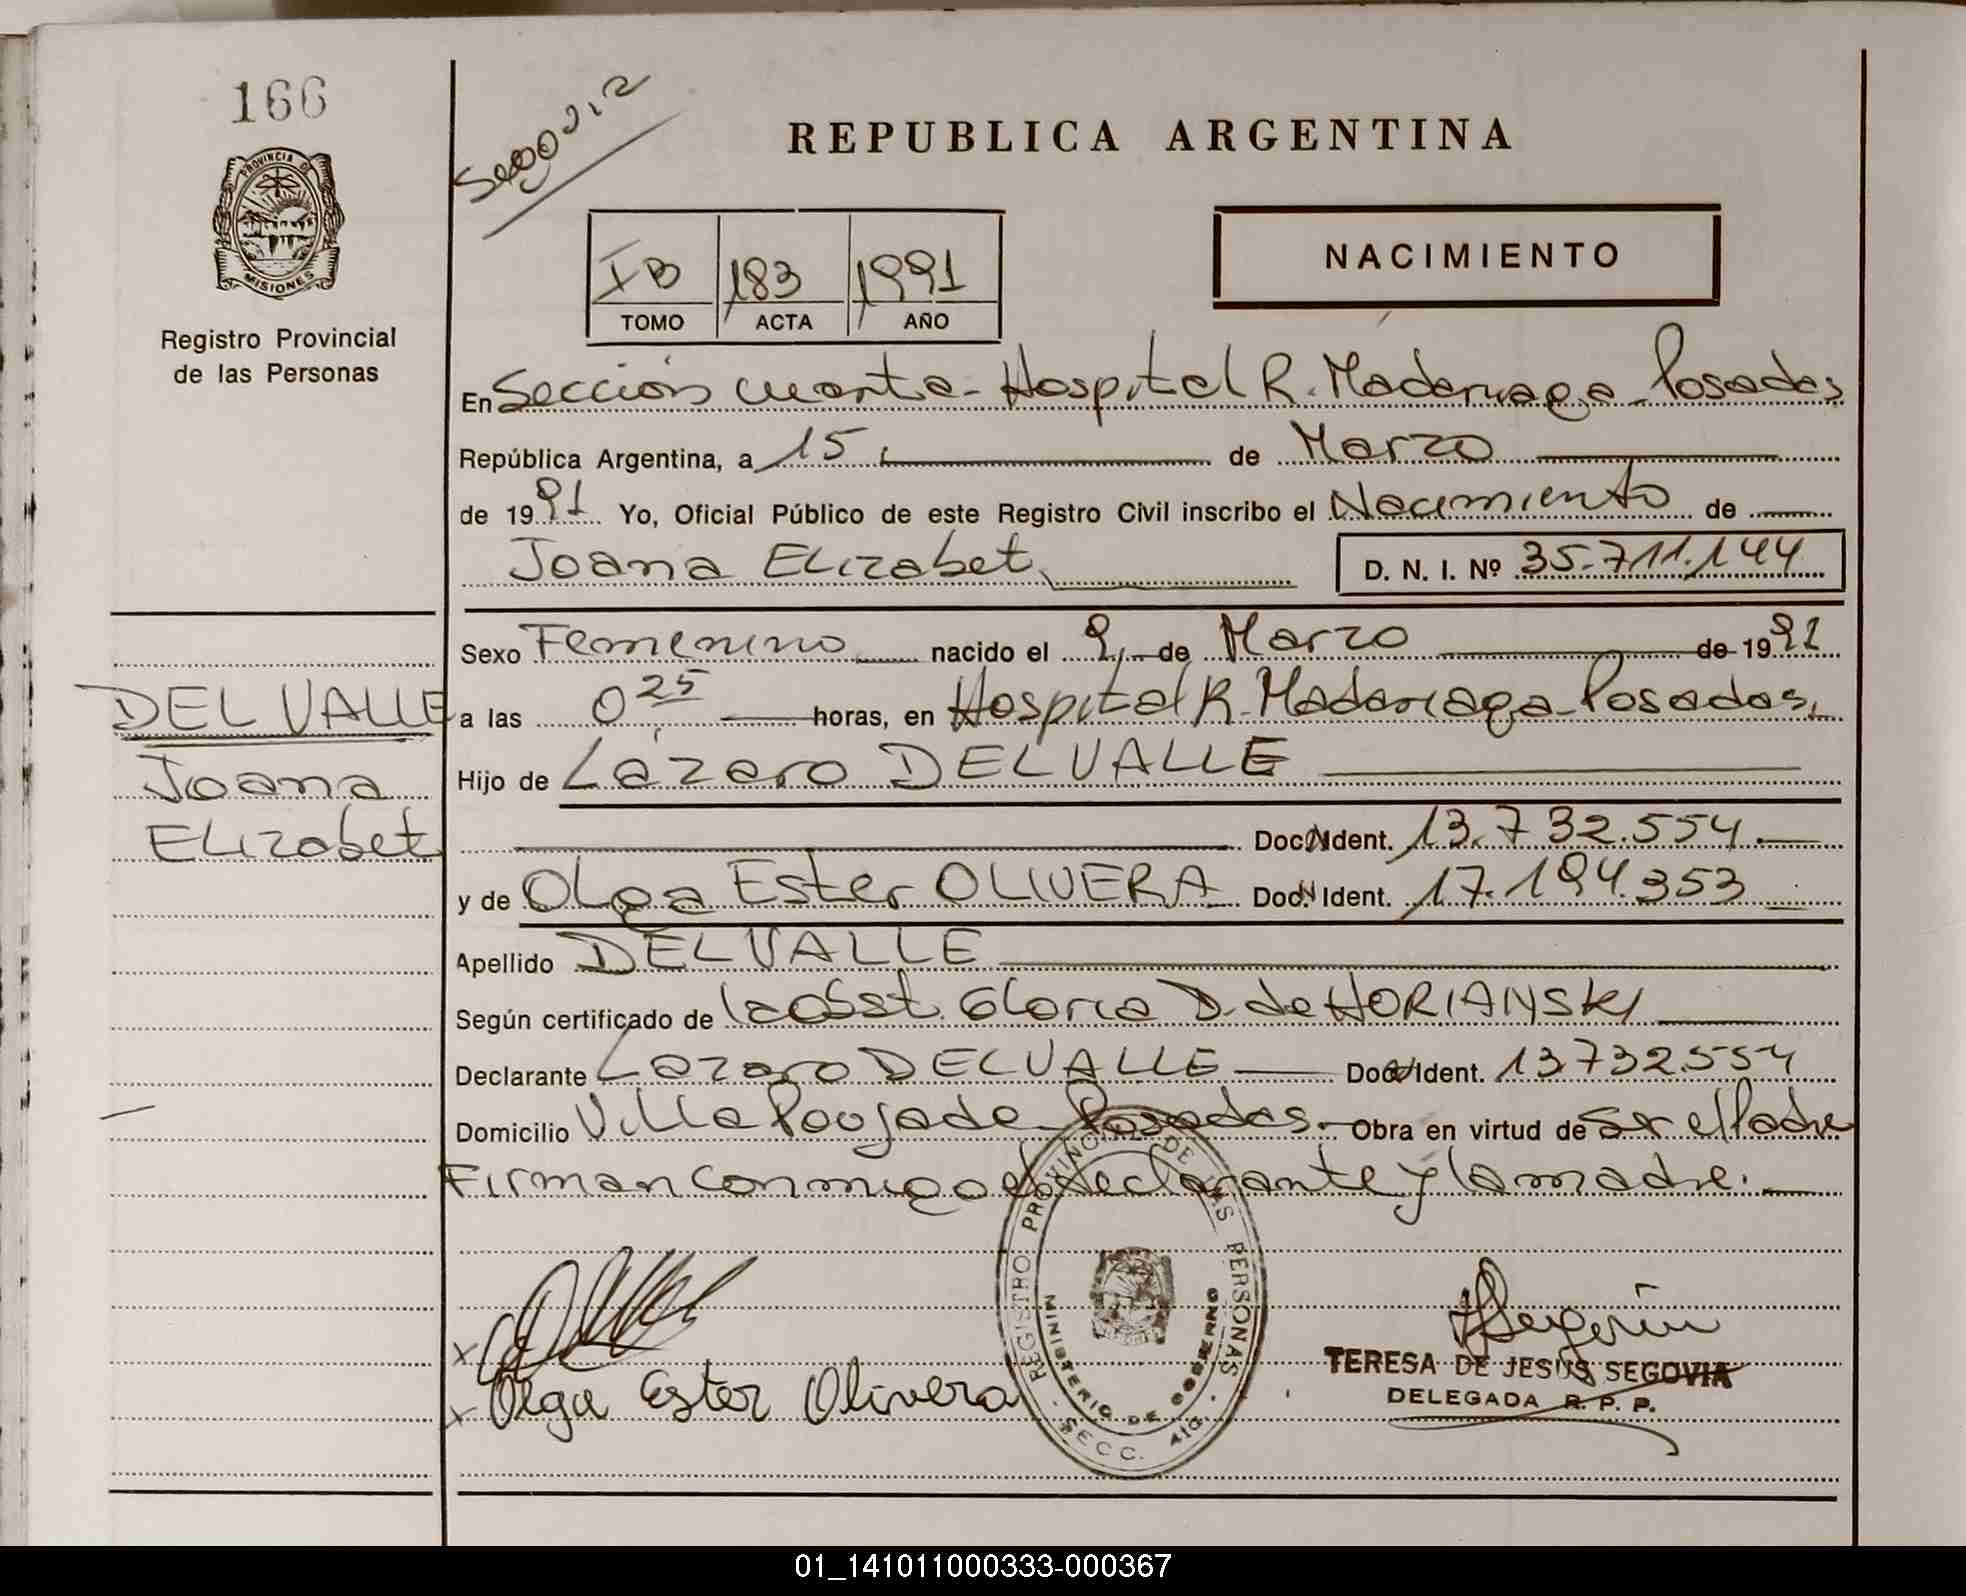 166
PROVINCIA DE
MISIONES
Registro Provincial
de las Personas
Segovia
REPUBLICA ARGENTINA
NACIMIENTO
I B 183 1991
TOMO ACTA AÑO
En Sección cuarta - Hospital R. Madariaga - Posadas
República Argentina, a 15 de Marzo
de 1991 Yo, Oficial Público de este Registro Civil inscribo el Nacimiento de
Joana Elizabet D. N. I. Nº 35.711.144
Sexo Femenino nacido el 9 de Marzo de 1991
DEL VALLE
Joana
Elizabet
a las 0 25 horas, en Hospital R. Madariaga - Posadas,
Hijo de Lázaro DELVALLE
Doc. Ident. 13.732.554.
y de Olga Ester OLIVERA Doc. Ident. 17.194.353
Apellido DELVALLE
Según certificado de la Obst. Gloria D. de HORIANSKI
Declarante Lazaro DELVALLE Doc. Ident. 13732.554
Domicilio Villa Poujade - Posadas. Obra en virtud de ser el Padre
Firman conmigo el declarante y la madre.
REGISTRO PROVINCIAL DE LAS PERSONAS
MINISTERIO DE GOBIERNO
SECC. 4ta.
x
x Olga Ester Olivera
TERESA DE JESUS SEGOVIA
DELEGADA R. P. P.
01_141011000333-000367